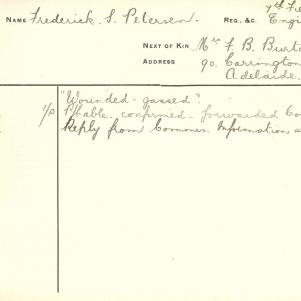 NAME Frederick. S. Petersen. REG. &C. 7th Fie
Engi
NEXT OF KIN Mrs F. B. Burto
ADDRESS 90. Carrington
Adelaide.
"Wounded - gassed"?
1/0 P/table. confirmed - forwarded Co
Reply from Commun. Information a